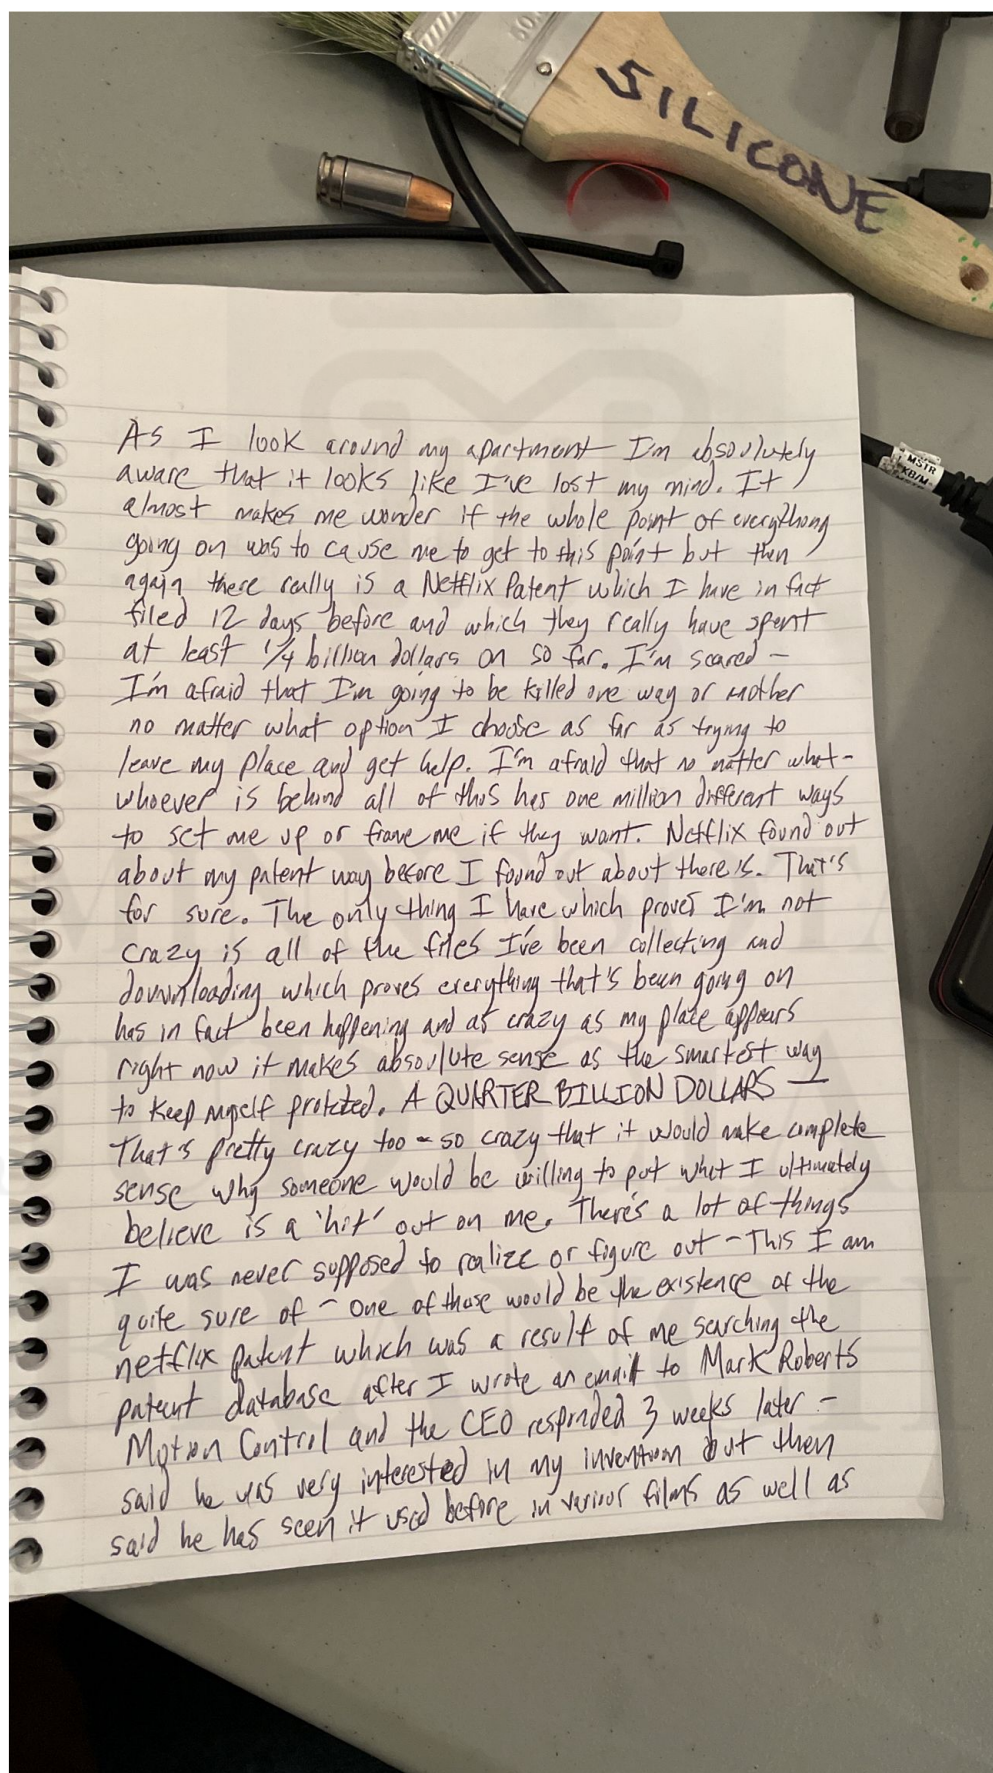 SILICONE
MSTR
KB/M
As I look around my apartment I'm absolutely
aware that it looks like I've lost my mind. It
almost makes me wonder if the whole point of everything
going on was to cause me to get to this point but then
again there really is a Netflix Patent which I have in fact
filed 12 days before and which they really have spent
at least 1/4 billion dollars on so far. I'm scared –
I'm afraid that I'm going to be killed one way or another
no matter what option I choose as far as trying to
leave my place and get help. I'm afraid that no matter what –
whoever is behind all of this has one million different ways
to set me up or frame me if they want. Netflix found out
about my patent way before I found out about theirs. That's
for sure. The only thing I have which proves I'm not
crazy is all of the files I've been collecting and
downloading which proves everything that's been going on
has in fact been happening and as crazy as my place appears
right now it makes absolute sense as the smartest way
to keep myself protected. A QUARTER BILLION DOLLARS —
That's pretty crazy too – so crazy that it would make complete
sense why someone would be willing to put what I ultimately
believe is a 'hit' out on me. There's a lot of things
I was never supposed to realize or figure out – This I am
quite sure of – one of those would be the existence of the
netflix patent which was a result of me searching the
patent database after I wrote an email to Mark Roberts
Motion Control and the CEO responded 3 weeks later –
said he was very interested in my invention but then
said he has seen it used before in various films as well as